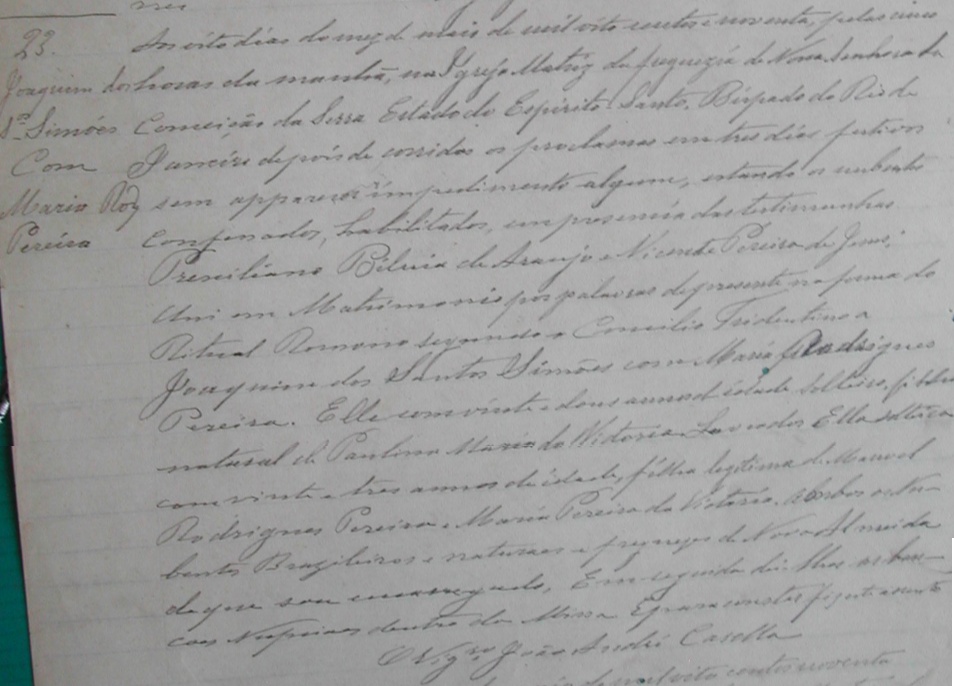 23.
Joaquim dos
Stos Simões
Com
Maria Roz
Pereira
Aos oito dias do mez de maio de mil oito centos e noventa, pelas cinco
horas da manhã, na Igreja Matriz da freguezia de Nossa Senhora da
Conceição da Serra Estado do Espirito Santo. Bispado do Rio de
Janeiro depois de corridos os proclamas em tres dias festivos
sem apparecer impedimento algum, estando os nubentes
confessados, habilitados, em presencia das testimunhas
Presciliano de Araujo e Vicente Pereira de Jesus,
Uni em Matrimonio por palavras de presente na forma do
Ritual Romano segundo o Concilio Tridentino a
Joaquim dos Santos Simões com Maria Rodrigues
Pereira. Elle com vinte e dous annos d'idade solteiro, filho
natural de Paulina Maria da Victoria Lavrador Ella solteira
com vinte e tres annos de idade, filha legitima de Manoel
Rodrigues Pereira e Maria Pereira da Victoria. Ambos os Nu-
bentes Brazileiros e naturaes e freguezes de Nova Almeida
de que sou encarregado, Em seguida dei-lhes as ben-
coes Nupciaes dentro da Missa E para constar fiz este assento
O Vigro João André Casella
mil oito centos noventa